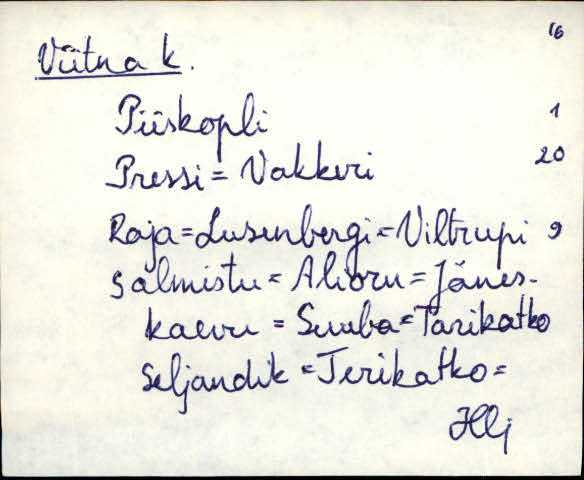 16
Viitna k.
Piiskopli 1
Pressi = Vakkeri 20
Raja = Lusenbergi = Viltrupi 9
Salmistu = Ahioru = Jänes-
kaevu = Suuba = Parikatko
Seljandik = Terikatko =